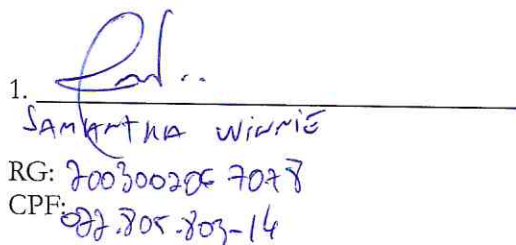 1.
SAMANTHA WINNIE
RG: 2003002067078
CPF: 022.805.803-14